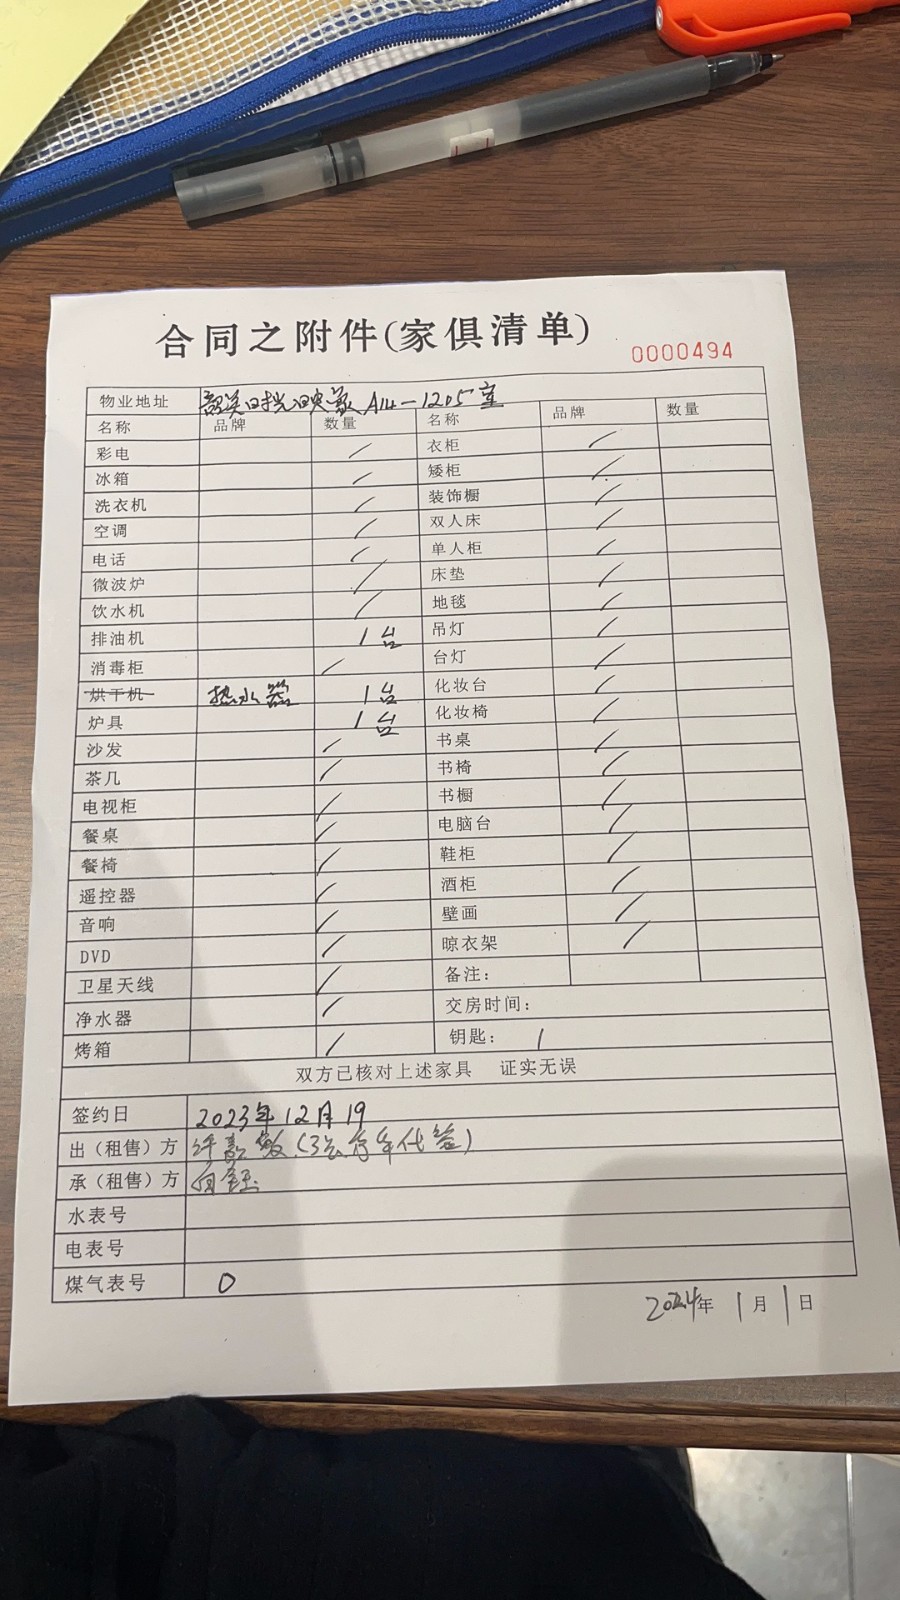 合同之附件(家俱清单)
0000494
物业地址 A14-1205室
名称 品牌 数量 名称 品牌 数量
彩电 / 衣柜 /
冰箱 / 矮柜 /
洗衣机 / 装饰橱 /
空调 / 双人床 /
电话 / 单人柜 /
微波炉 / 床垫 /
饮水机 / 地毯 /
排油机 1台 吊灯 /
消毒柜 / 台灯 /
烘干机 热水器 1台 化妆台 /
炉具 1台 化妆椅 /
沙发 / 书桌 /
茶几 / 书椅 /
电视柜 / 书橱 /
餐桌 / 电脑台 /
餐椅 / 鞋柜 /
遥控器 / 酒柜 /
音响 / 壁画 /
DVD / 晾衣架 /
卫星天线 / 备注：
净水器 / 交房时间：
烤箱 / 钥匙： 1
双方已核对上述家具 证实无误
签约日 2023年12月19
出（租售）方
承（租售）方
水表号
电表号
煤气表号 0
2024年 1月1日